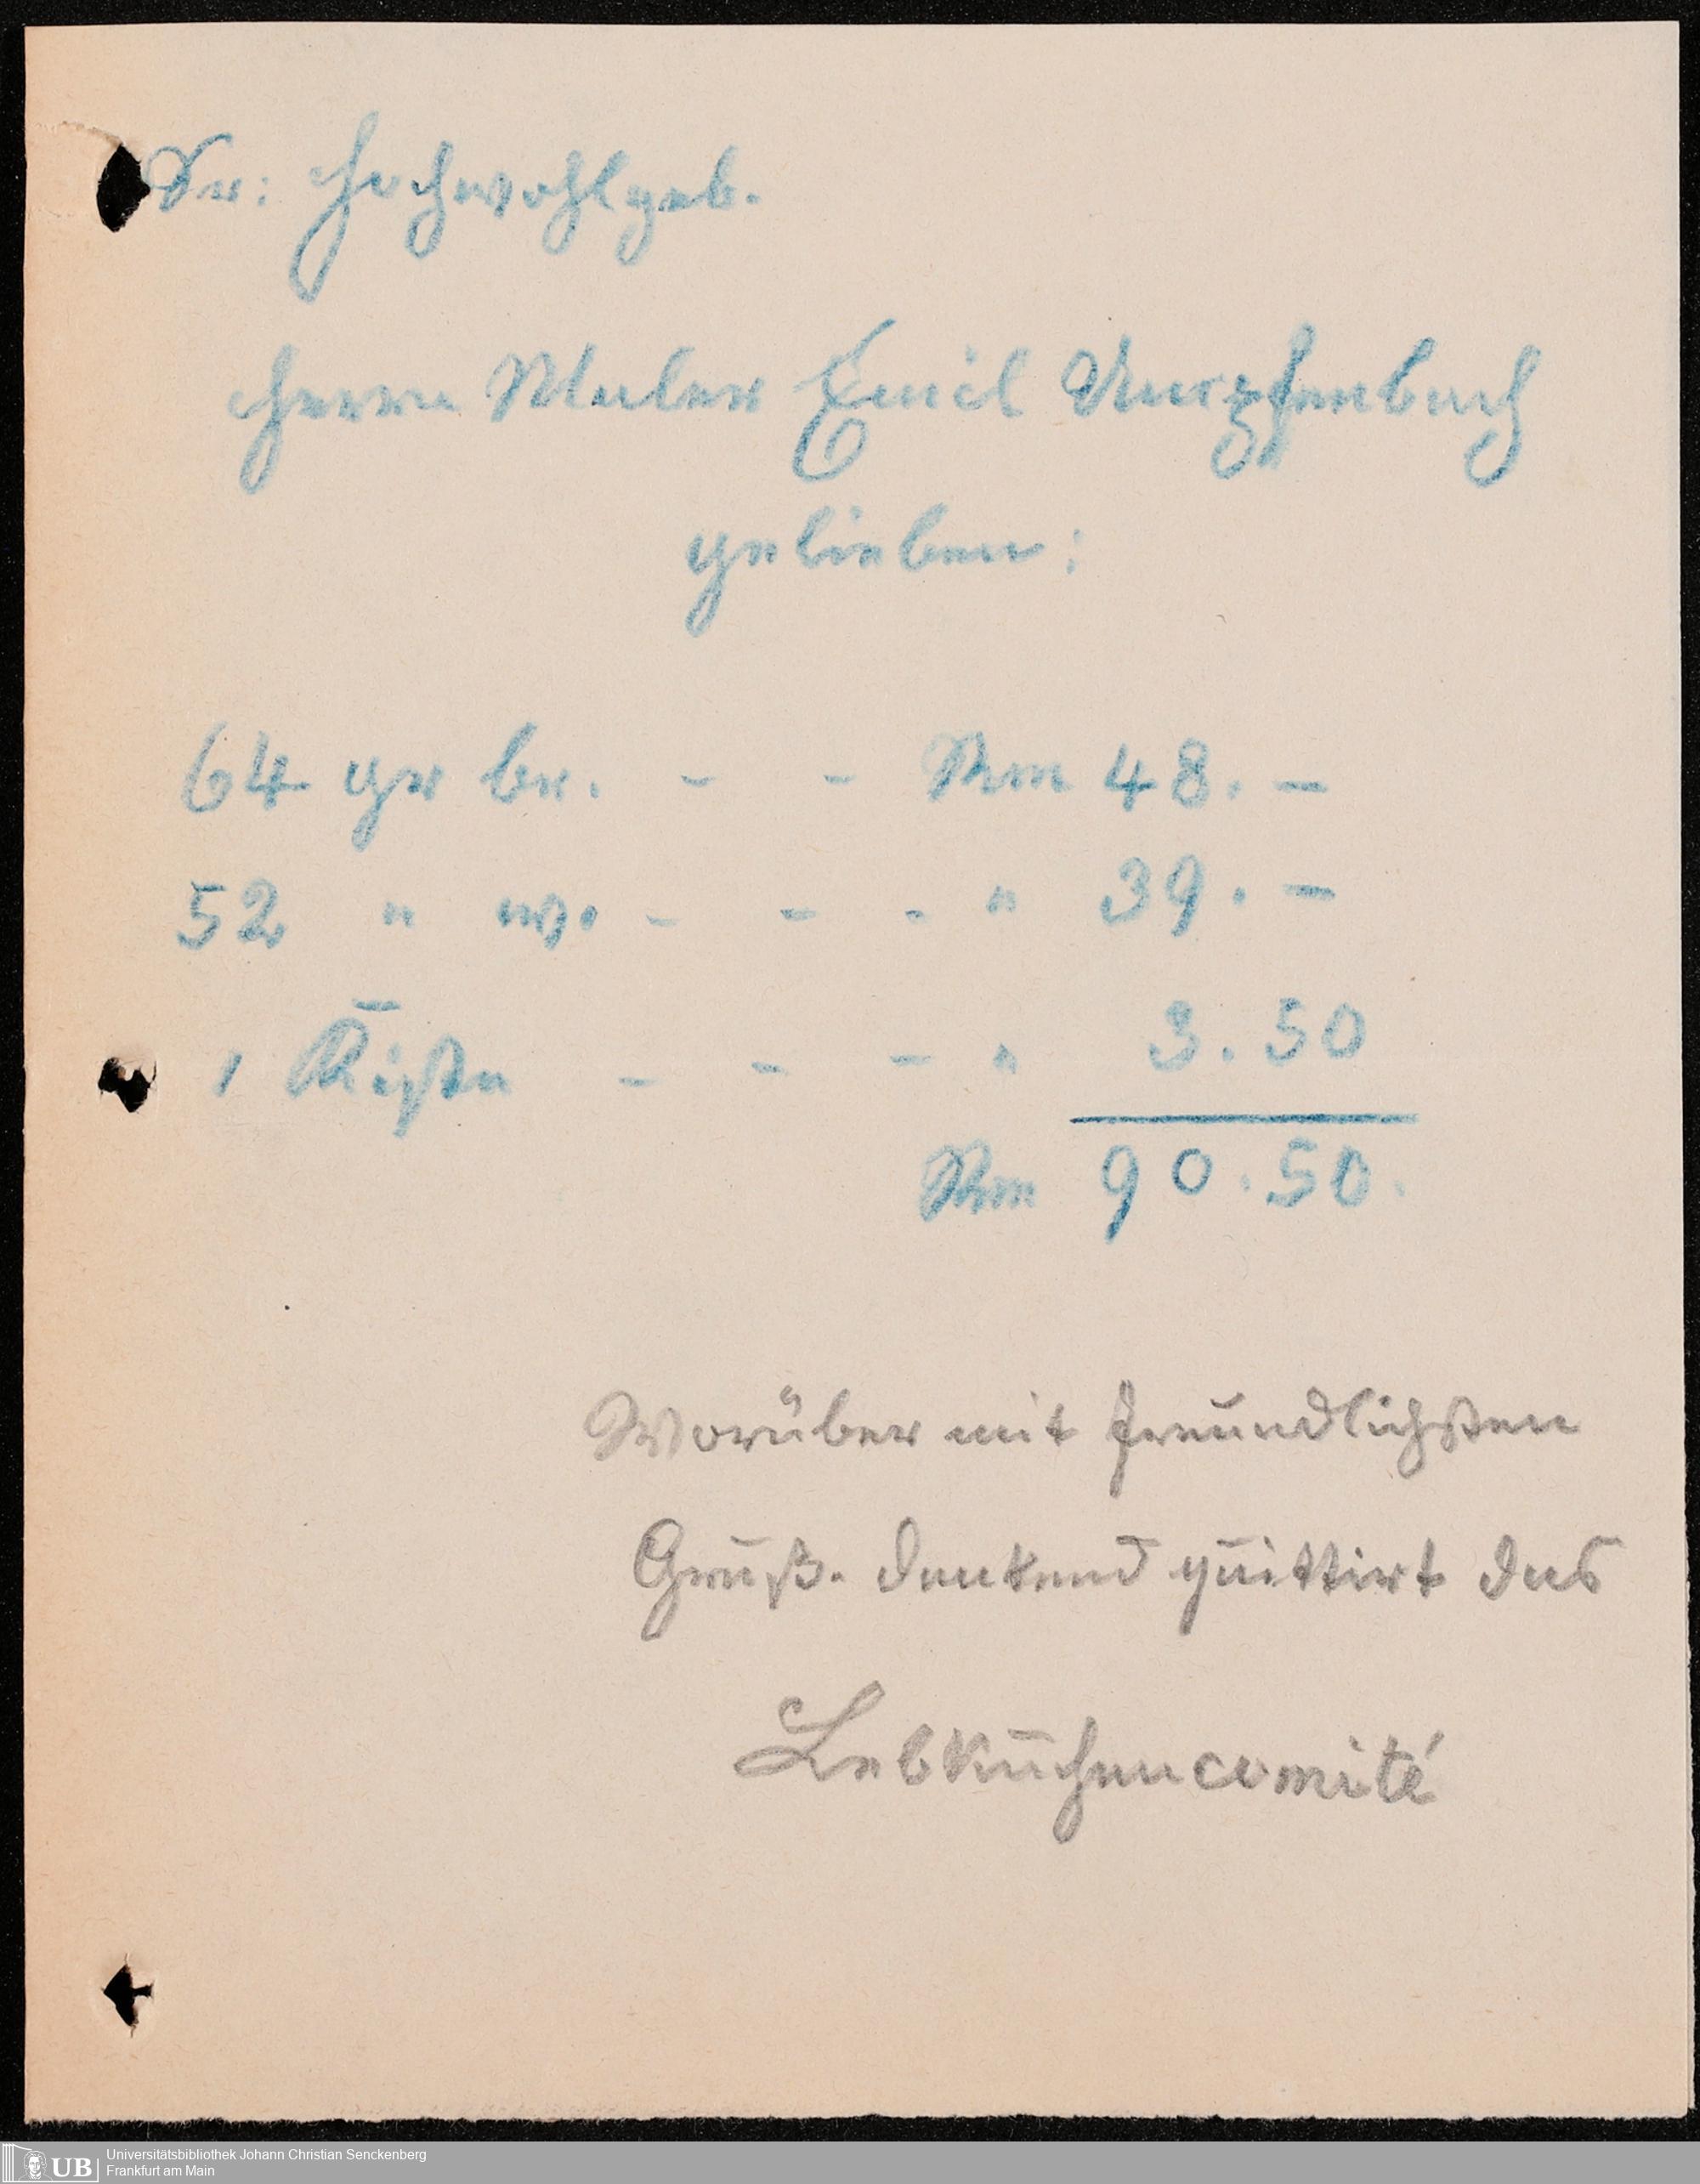 Sr: Hochwohlgeb.
Herrn Maler Emil
gelieben:
64 gr br. - - Rm 48.—
52 " w. - - - " 39.—
1 Kiste - - - " 3.50
Rm 90.50.
Worüber mit freundlichsten
Gruß. dankend quittirt das
Lebkuchencomité
UB Universitätsbibliothek Johann Christian Senckenberg
Frankfurt am Main